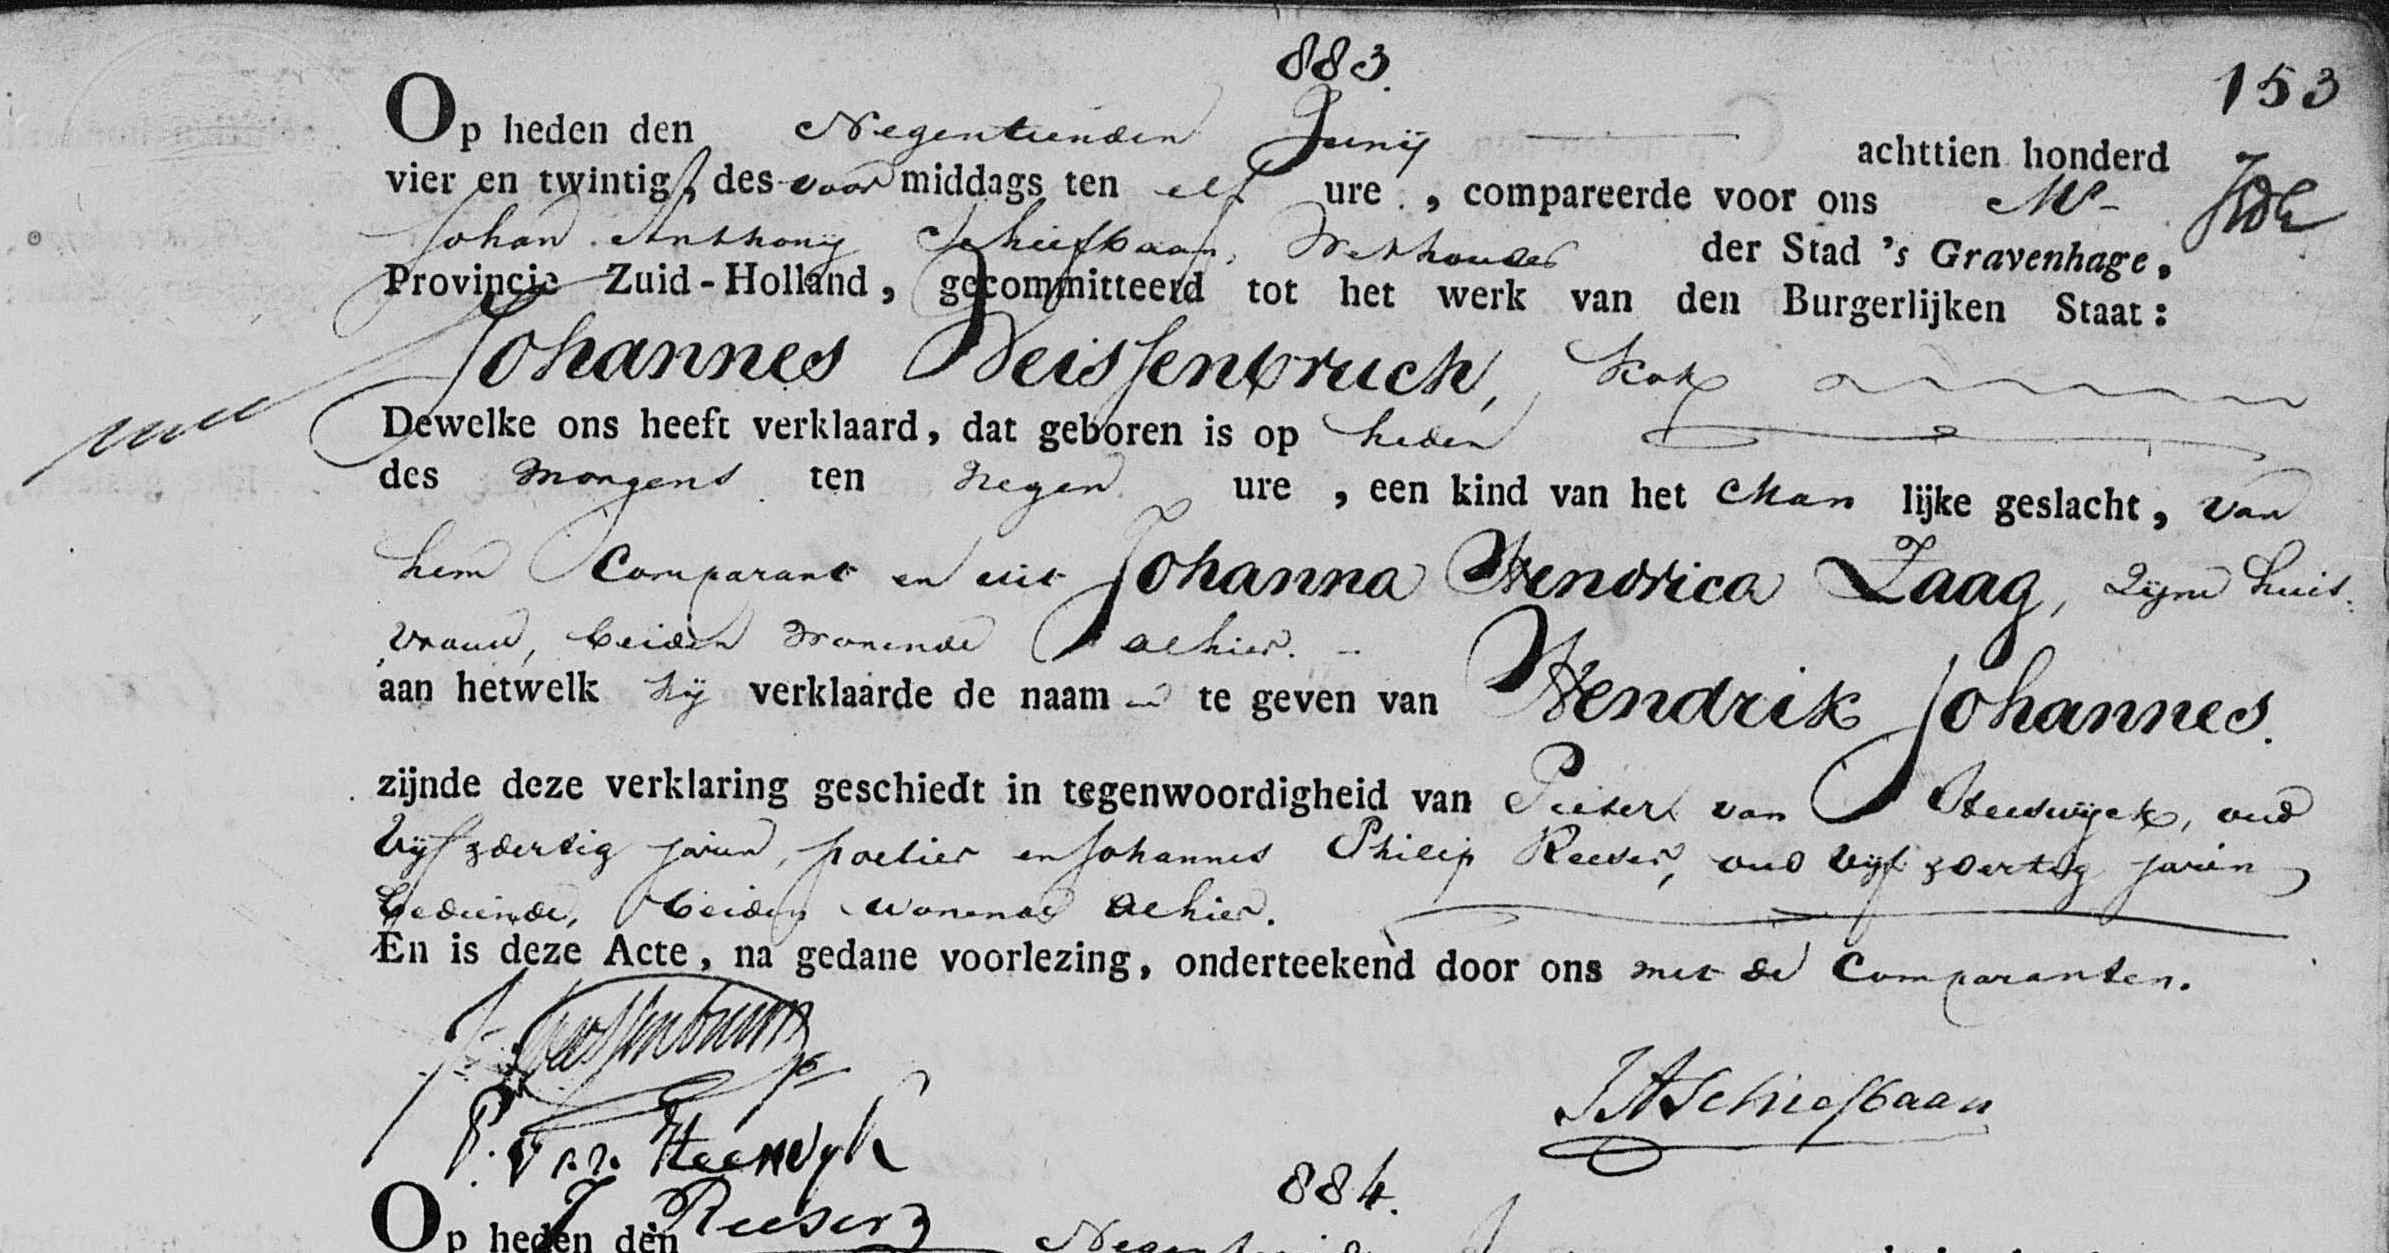 883.
153
Op heden den Negentienden Junij achttien honderd
vier en twintig, des voor middags ten elf ure, compareerde voor ons Mr
Johan Anthony Schiefbaan, Wethouder der Stad 's Gravenhage,
Provincie Zuid-Holland, gecommitteerd tot het werk van den Burgerlijken Staat:
Johannes Weissenbruch, kok
Dewelke ons heeft verklaard, dat geboren is op heden
des morgens ten negen ure, een kind van het Man lijke geslacht, van
hem Comparant en uit Johanna Hendrica Zaag, zijne huis-
vrouw, beiden wonende alhier.
aan hetwelk hij verklaarde de naam te geven van Hendrik Johannes.
zijnde deze verklaring geschiedt in tegenwoordigheid van Pieter van Heeswyck, oud
vijf & dertig jaren, poelier en Johannes Philip Reeser, oud vijf & dertig jaren
bediende, beiden wonende alhier.
En is deze Acte, na gedane voorlezing, onderteekend door ons met de Comparanten.
J. Weissenbruch
JASchiefbaan
P. van Heeswyk
J Reeser
884.
Op heden den